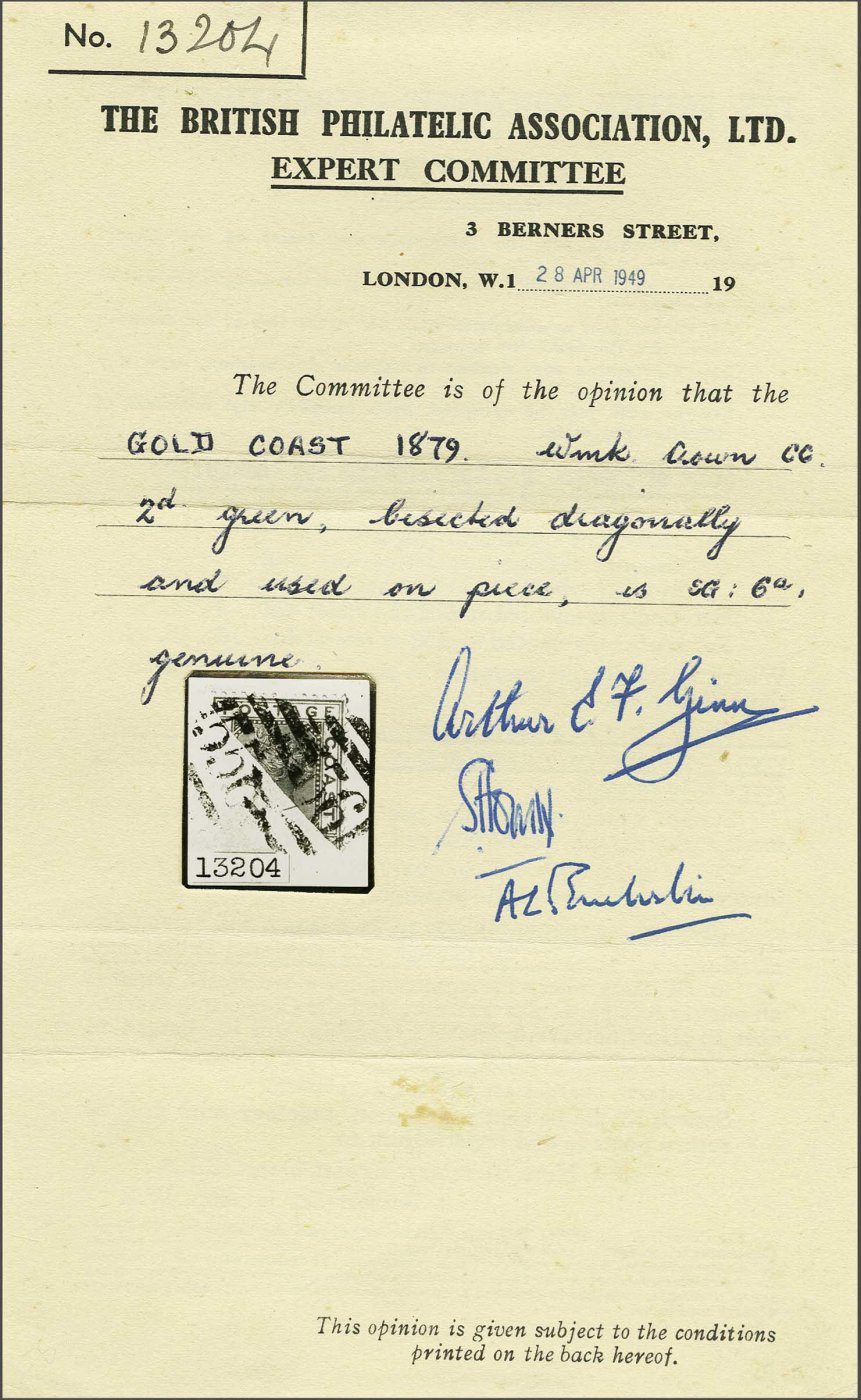 No. 13204
THE BRITISH PHILATELIC ASSOCIATION, LTD.
EXPERT COMMITTEE
3 BERNERS STREET,
LONDON, W.1 28 APR 1949 19
The Committee is of the opinion that the
GOLD COAST 1879. Wmk Crown CC.
2d green, bisected diagonally
and used on piece, is SG: 6a.
genuine.
Arthur E F. Ginn
POSTAGE
COAST
13204
This opinion is given subject to the conditions
printed on the back hereof.